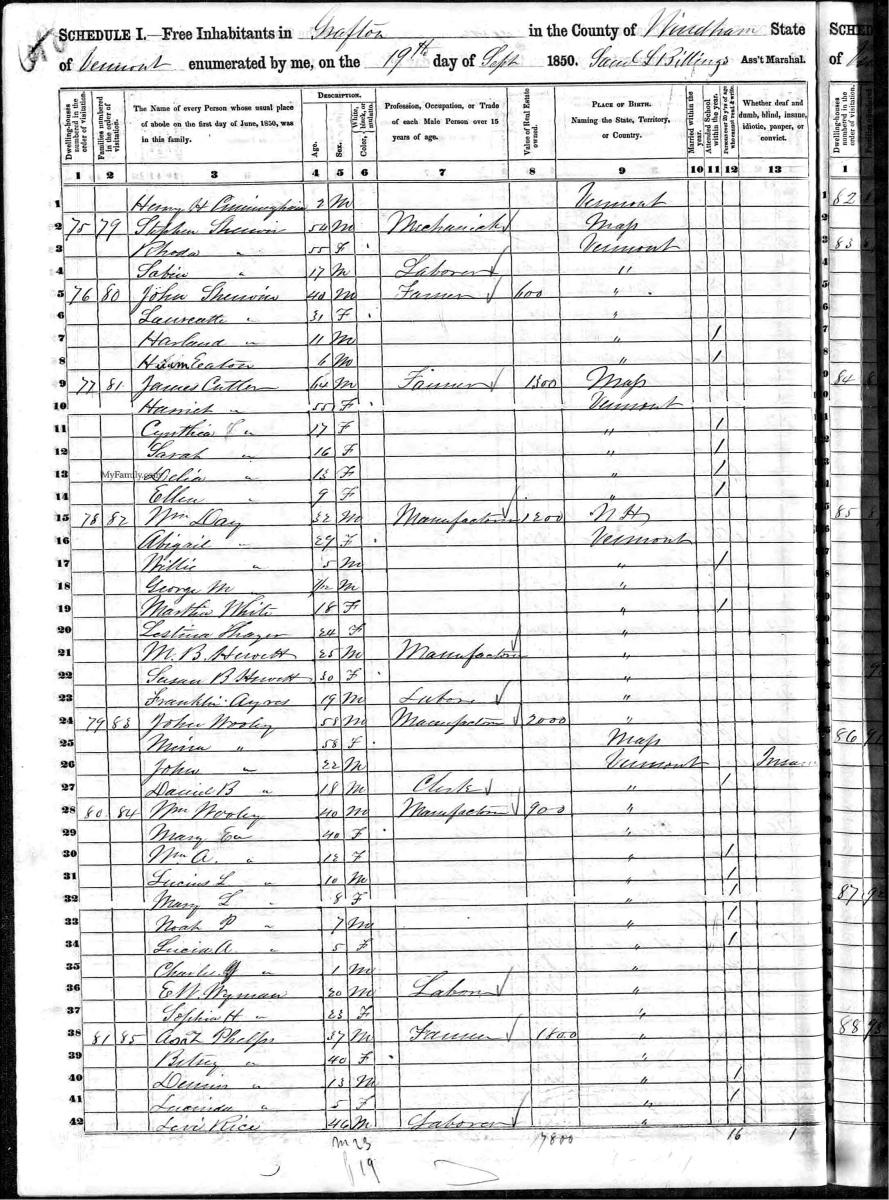 SCHEDULE I.—Free Inhabitants in Grafton in the County of Windham State
of Vermont enumerated by me, on the 19th day of Sept 1850. Saml L Billings Ass't Marshal.
Dwelling-houses numbered in the order of visitation. Families numbered in the order of visitation. The Name of every Person whose usual place of abode on the first day of June, 1850, was in this family. DESCRIPTION. Age. Sex. Color, White, black, or mulatto. Profession, Occupation, or Trade of each Male Person over 15 years of age. Value of Real Estate owned. PLACE OF BIRTH. Naming the State, Territory, or Country. Married within the year. Attended School within the year. Persons over 20 y'rs of age who cannot read & write. Whether deaf and dumb, blind, insane, idiotic, pauper, or convict.
1 2 3 4 5 6 7 8 9 10 11 12 13
1 Henry H Cunningham 2 M Vermont
2 75 79 Stephen Sherwin 54 M Mechanick Mass
3 Rhoda " 55 F Vermont
4 Sabin " 17 M Laborer "
5 76 80 John Sherwin 40 M Farmer 600 "
6 Laureatte " 31 F "
7 Harland " 11 M " 1
8 Hiram Eaton 6 M " 1
9 77 81 James Cutler 64 M Farmer 1300 Mass
10 Harriet " 55 F Vermont
11 Cynthia " 17 F " 1
12 Sarah " 16 F " 1
13 Delia " 13 F " 1
14 Ellen " 9 F " 1
15 78 82 Wm Day 32 M Manufacturer 1200 N H
16 Abigail " 29 F Vermont
17 Willie " 5 M " 1
18 George M M "
19 Martha White 18 F " 1
20 Lestina Thayer 24 F "
21 M. B. Hewett 25 M Manufacturer "
22 Susan B Hewett 30 F "
23 Franklin Ayres 19 M Labore "
24 79 83 John Wooley 58 M Manufacturer 2000 "
25 " 58 F Mass
26 John " 22 M Vermont Insane
27 David B " 18 M Clerk " 1
28 80 84 Wm Wooley 40 M Manufacturer 900 "
29 Mary E " 40 F "
30 Wm A. " 12 F " 1
31 Lucius L " 10 M " 1
32 Mary L " 8 F " 1
33 Noah P " 7 M " 1
34 Lucia A. " 5 F " 1
35 Charles " 1 M "
36 E W. Wyman 20 M Labore "
37 Sophia H " 23 F "
38 81 85 Phelps 37 M Farmer 1800 "
39 Betsey " 40 F "
40 Dennis " 13 M " 1
41 Lucinda " 5 F " 1
42 Levi Rice 46 M Laborer "
m 23 7800 16 1
f 19
MyFamily.com
SCHED
of
1
82
83
84
85
86 91
87
88